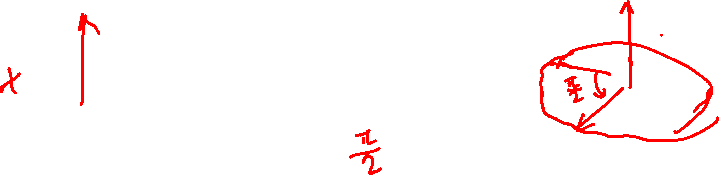 x
π/2
π/2